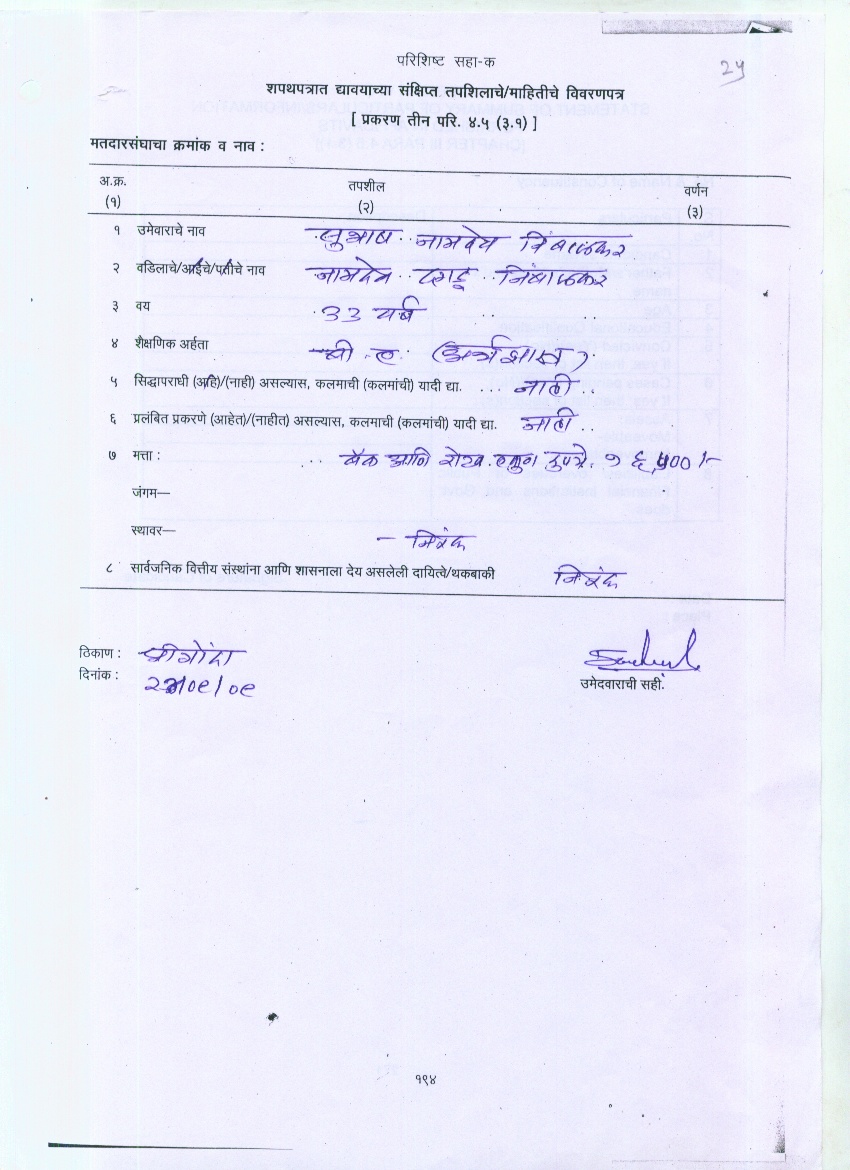 २५
परिशिष्ट सहा-क
शपथपत्रात द्यावयाच्या संक्षिप्त तपशिलाचे/माहितीचे विवरणपत्र
[ प्रकरण तीन परि. ४.५ (३.१) ]
मतदारसंघाचा क्रमांक व नाव :
अ.क्र. तपशील वर्णन
(१) (२) (३)
१ उमेवाराचे नाव सुभाष नामदेव निंबाळकर
२ वडिलाचे/आईचे/पतीचे नाव नामदेव दगडू निंबाळकर
३ वय ३३ वर्ष
४ शैक्षणिक अर्हता बी. ए. (अर्थशास्त्र)
५ सिद्धापराधी (आहे)/(नाही) असल्यास, कलमाची (कलमांची) यादी द्या. ... नाही..
६ प्रलंबित प्रकरणे (आहेत)/(नाहीत) असल्यास, कलमाची (कलमांची) यादी द्या. नाही..
७ मत्ता : ... बँक आणि रोख एकुण रुपये. १६,५००/-
जंगम—
स्थावर— - निरंक
८ सार्वजनिक वित्तीय संस्थांना आणि शासनाला देय असलेली दायित्वे/थकबाकी निरंक
ठिकाण : श्रीगोंदा
दिनांक : /०९/०९
उमेदवाराची सही.
१९४